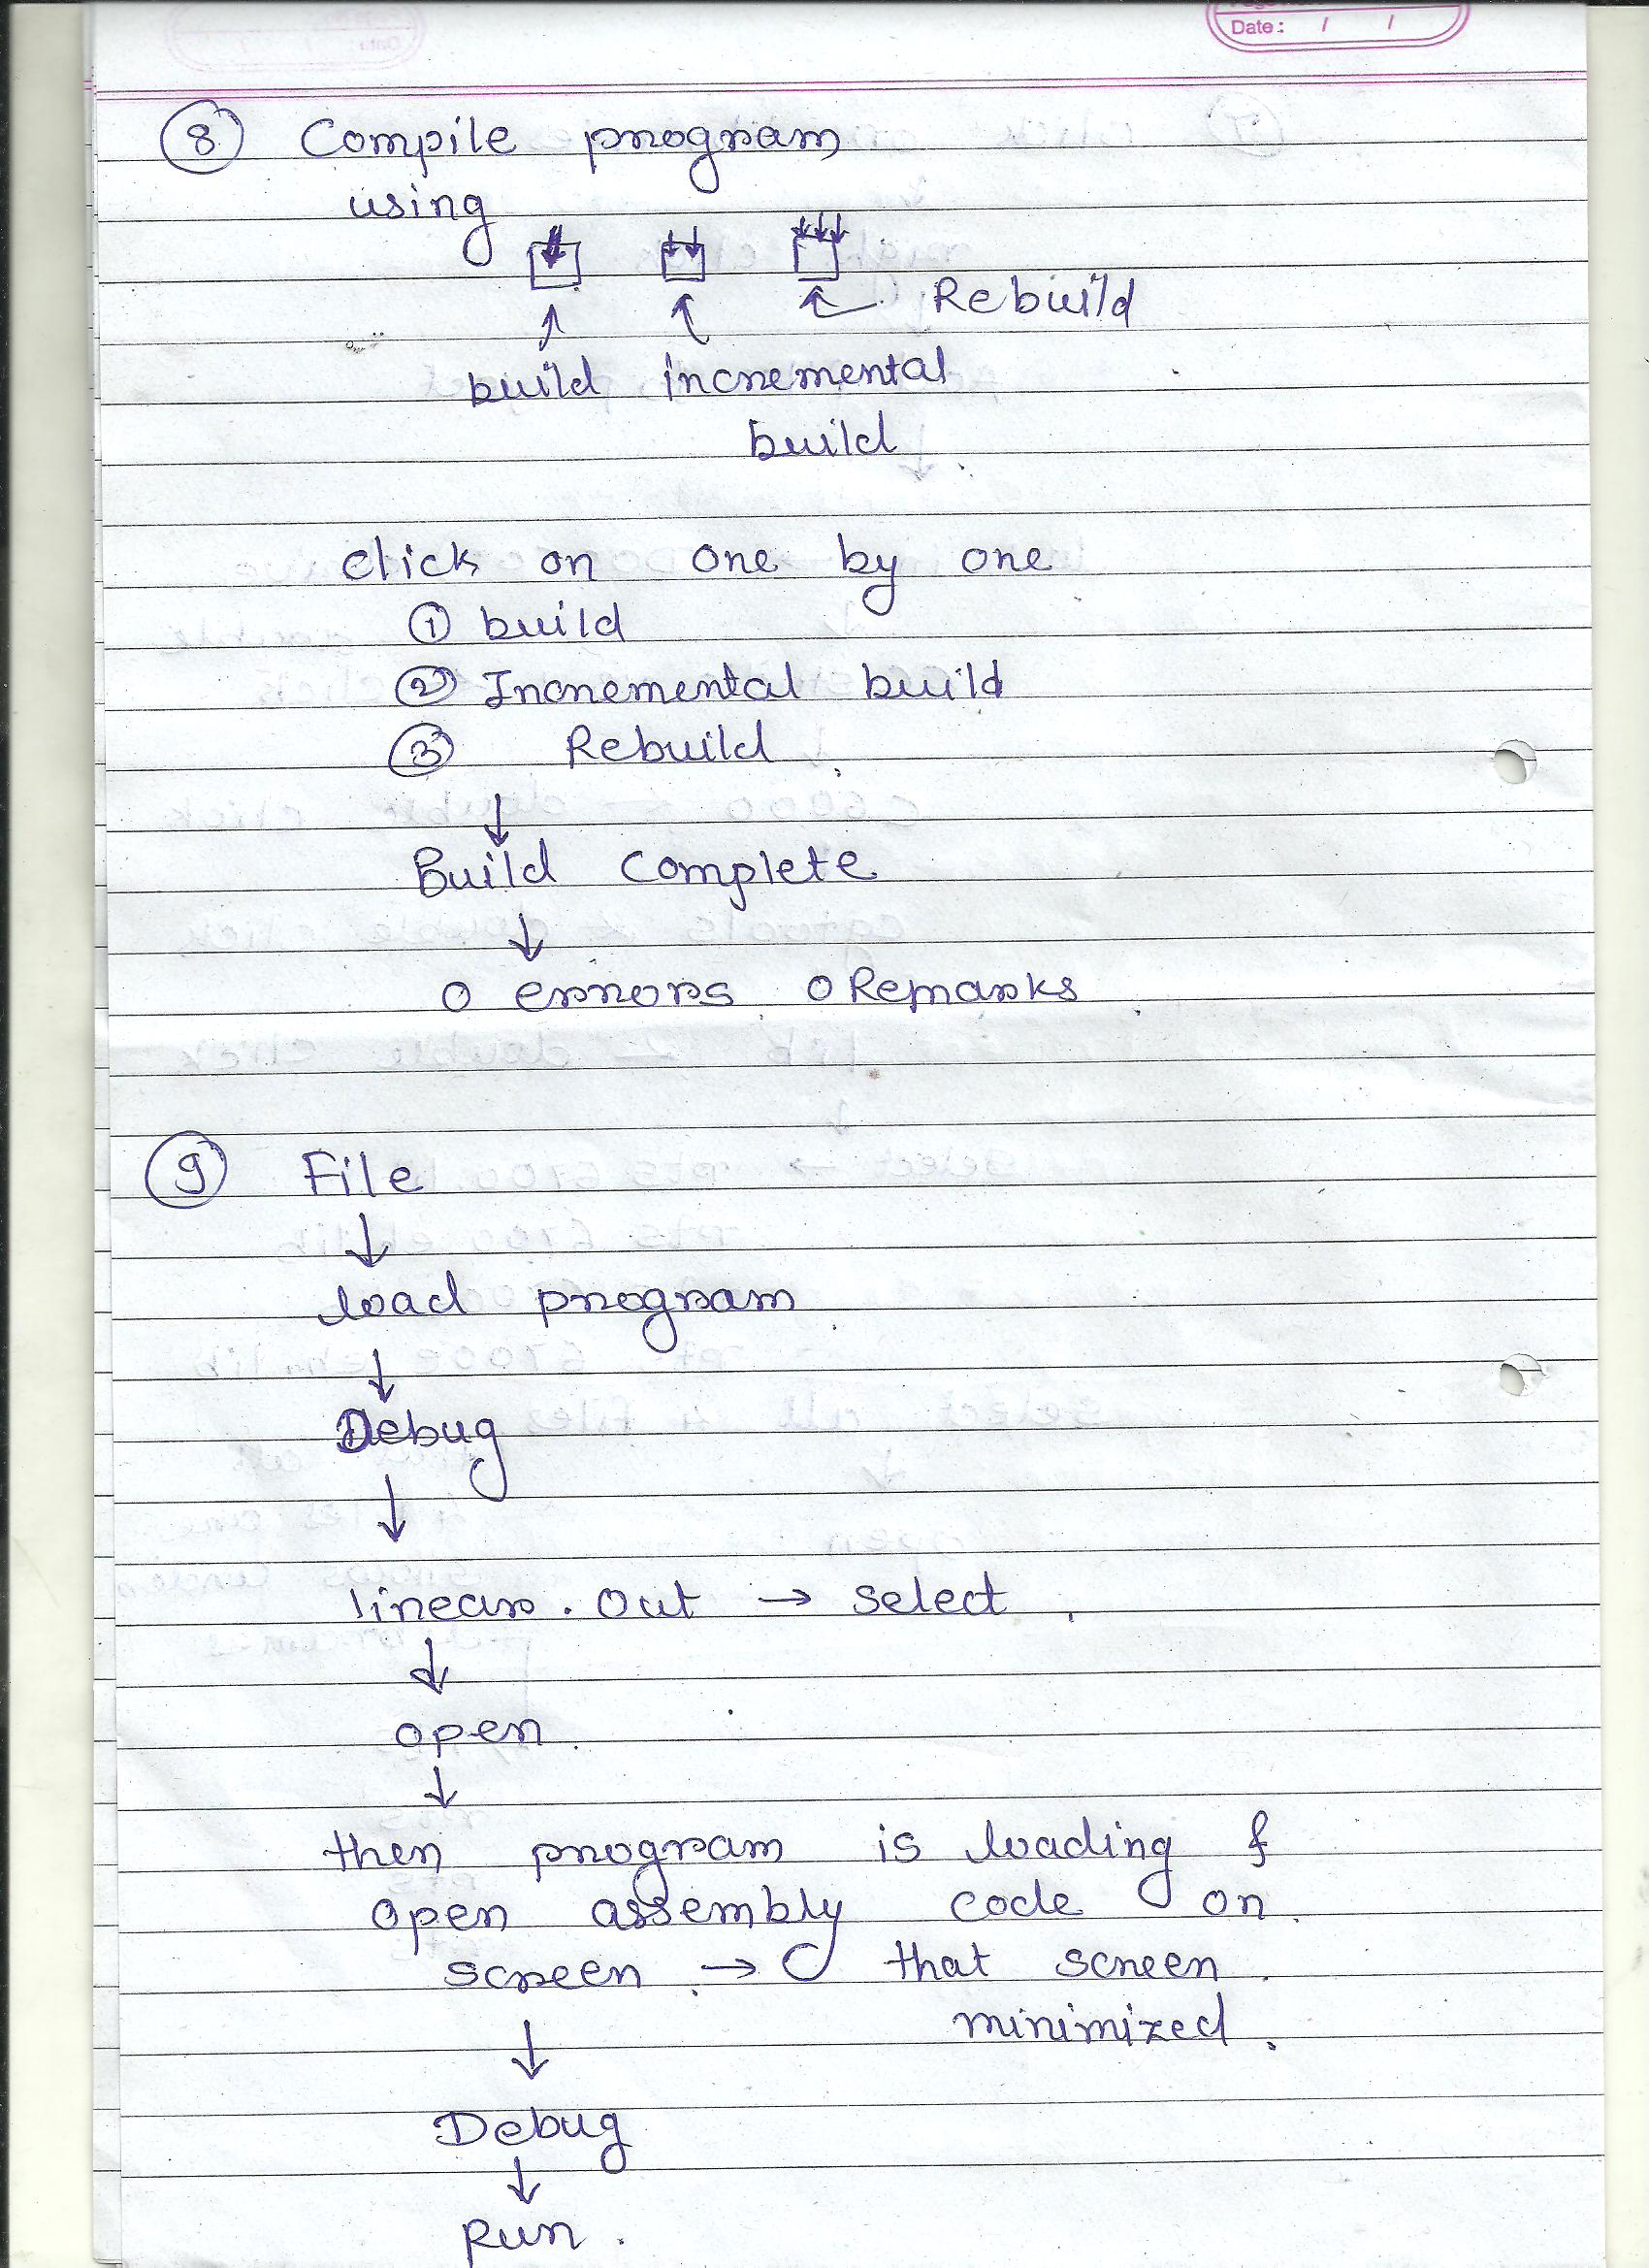 Date: / /
8 Compile program
using
Rebuild
build incremental
build
click on one by one
1 build
2 Incremental build
3 Rebuild
↓
Build Complete
↓
0 errors 0 Remarks
9 File
↓
load program
↓
Debug
↓
linear. out → select
↓
open.
↓
then program is loading &
open assembly code on
screen → that screen
minimized.
↓
Debug
↓
Run.